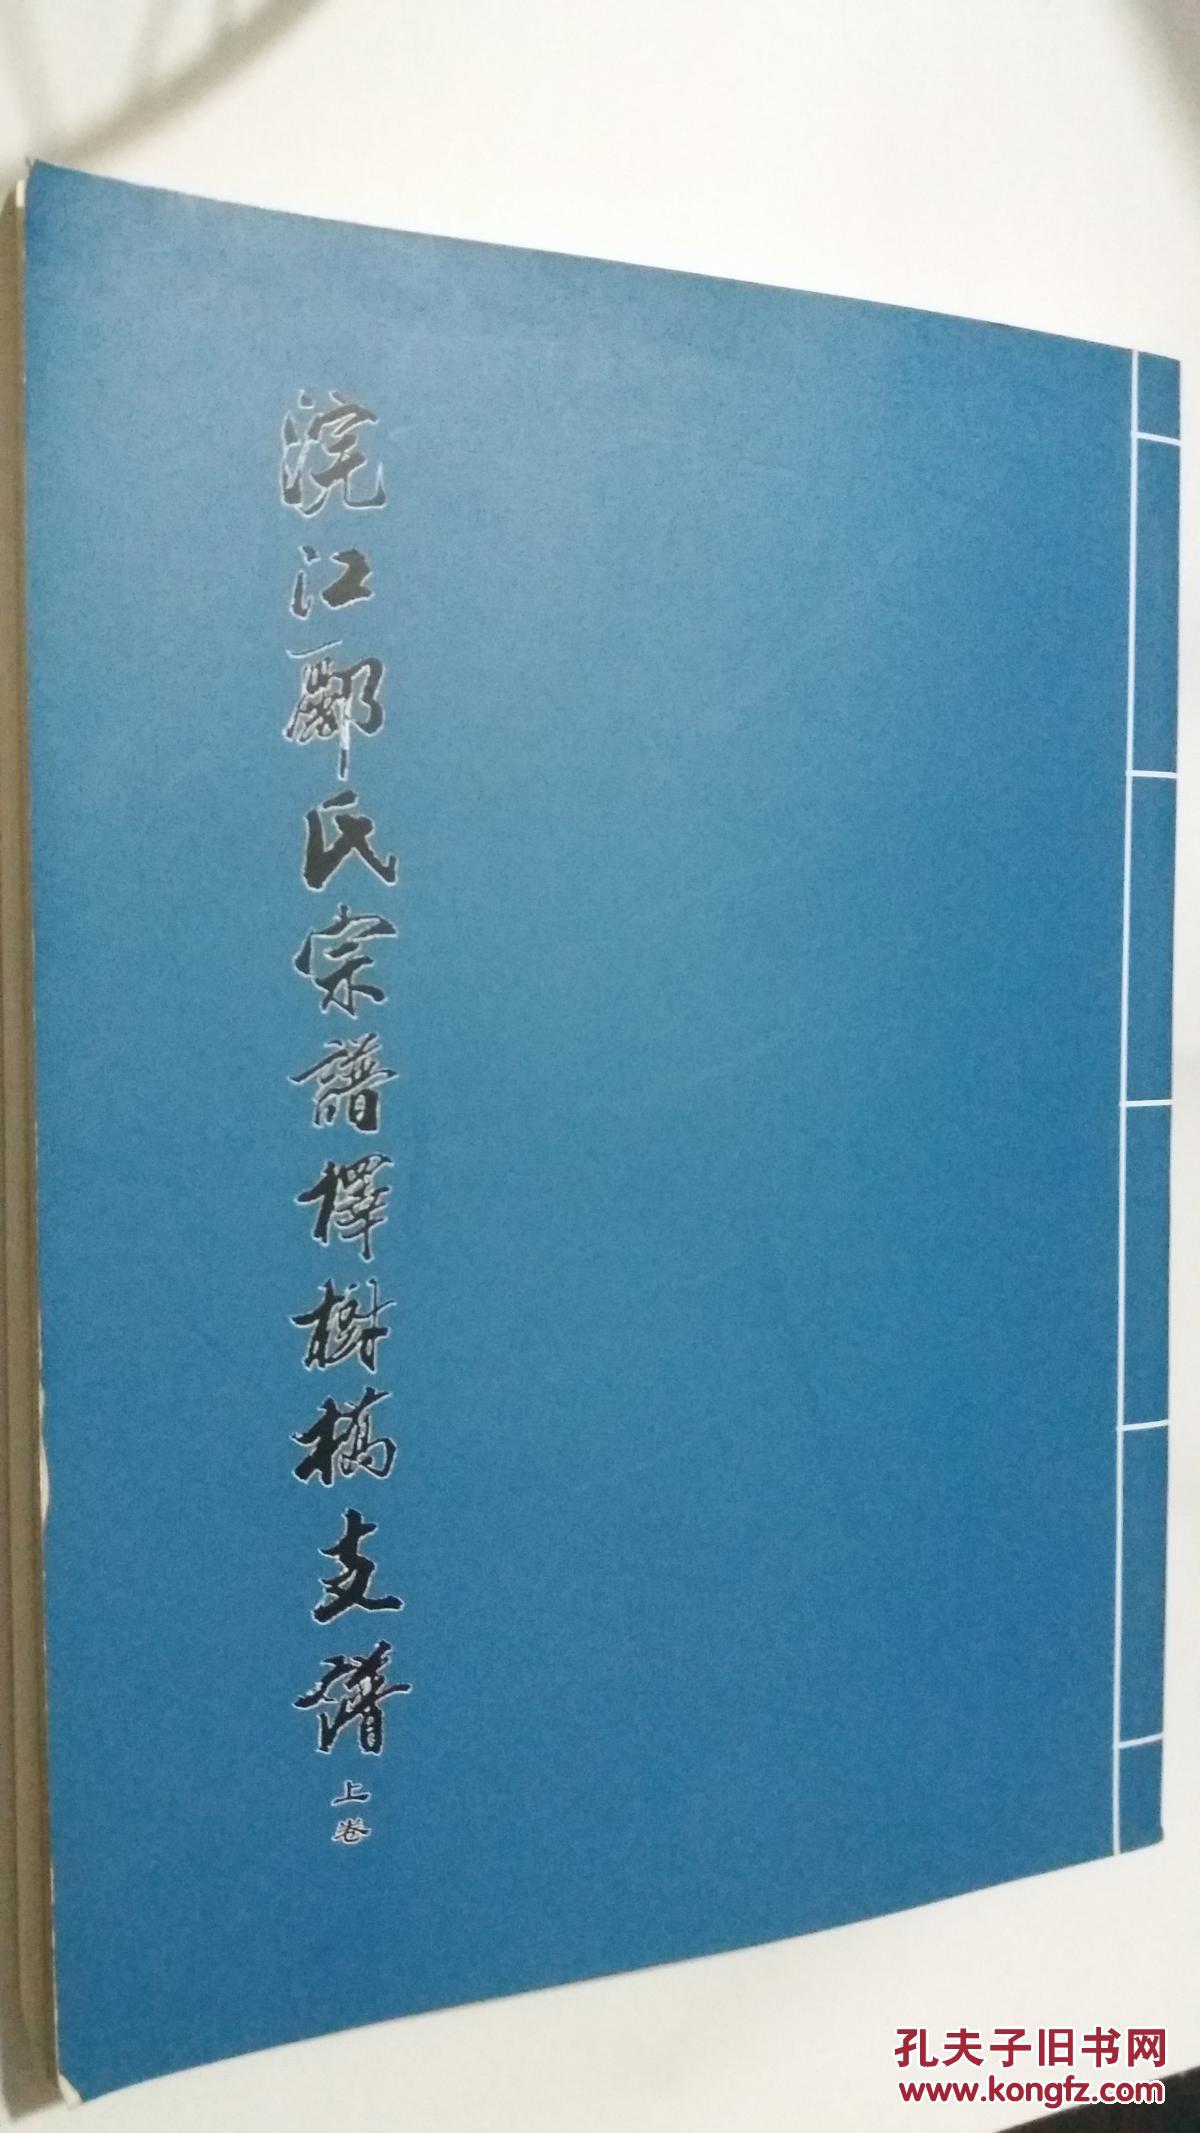 浣江酈氏宗譜檡樹橋支譜
上卷
孔夫子旧书网
www.kongfz.com